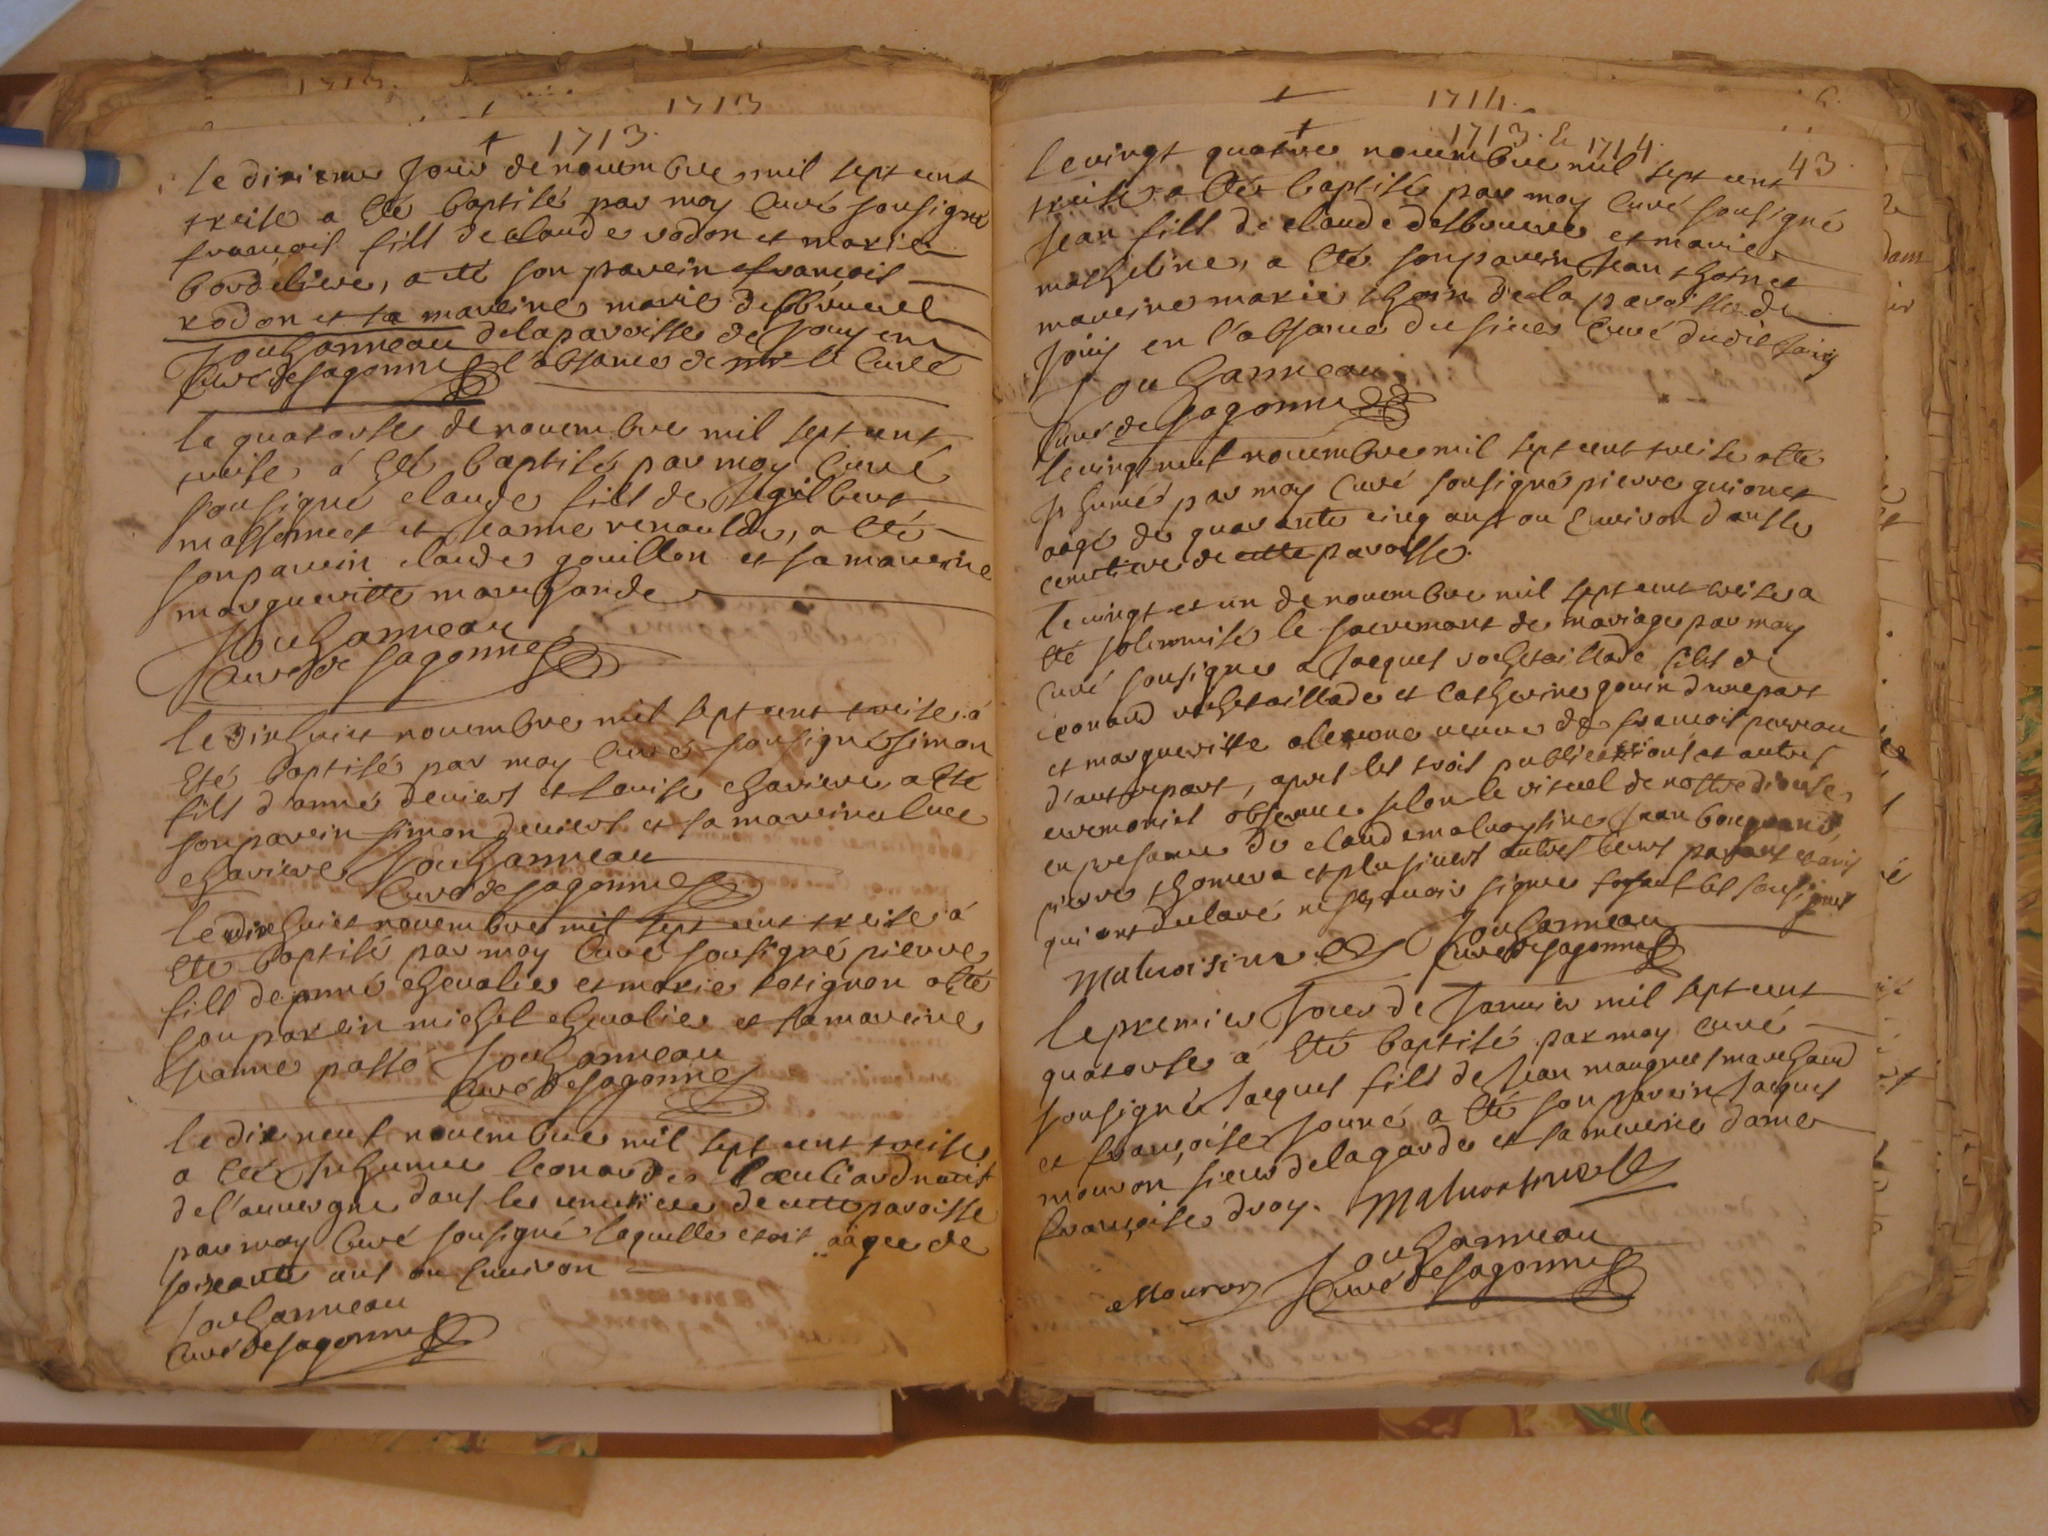 1713
1713
le dixieme Jour de novembre mil sept cent
treise a été baptisé par moy Curé sousigné
françois fils de claude rodon et marie
bordeliere, a été son parein françois
rodon et sa mareine marie desbruerel
Jouhanneau de la paroisse de Jouy en
Curé de Sagonne l'absance de le Curé
le quatorse de novembre mil sept cent
treise á été baptisé par moy Curé
sousigné claude fils de gilbert
massonnet et Jeanne renaulde, a été
son parein claude gouillon et sa mareine
marguerite marchande
Jouhanneau
Curé de Sagonne
le dixhuit novembre mil sept cent treise á
été baptisé par moy Curé sousigné simon
fils d'anné deviers et Louise chariere a été
son parein simon deviers et sa mareine luce
chariere Jouhanneau
Curé de Sagonne
le dixhuit novembre mil sept cent treise á
été baptisé par moy Curé sousigné pierre
fils de anné chevalier et marie rosignon a été
son parein michel chevalier et sa mareine
Jeanne passe Jouhanneau
Curé de Sagonne
le dix neuf novembre mil sept cent treise
a été Inhumée leonarde
de l'auvergne dans le cemetiere de cette paroisse
par moy Curé sousigné laquelle etoit aagee de
soixante ans ou Environ
Jouhanneau
Curé de Sagonne
1714
1713 & 1714
43
le vingt quatre novembre mil sept cent
treise a été baptisé par moy Curé sousigné
Jean fils de claude desbruere et marie
macheline, a été son parein Jean thoin et
mareine marie thoin de la paroisse de
Joüy en l'absance du sieur Curé dudit Joüy
Jouhanneau
Curé de Sagonne
le vingt neuf novembre mil sept cent treise a été
Inhumé par moy Curé sousigné pierre guionet
aagé de quarante cinq ans ou Environ dans le
cemetiere de cette paroisse.
le vingt et un de novembre mil sept cent treise a
été solemnisé le sacrement de mariage par moy
Curé sousigné a Jacques rochetaillade fils de
leonard rochetaillade et Catherine gouin d'une part
et marguerite veuve de françois perreau
d'autre part, apres les trois publications et autres
ceremonies observée selon le rituel de nostre diocese
en presance de claude malvoysine Jean
pierre thomera et plusieurs autres leurs parans et amis
qui ont declaré ne sçavoir signer forsant les sousignes
Malvoisine Jouhanneau
Curé de Sagonne
le premier Jour de Janvier mil sept cent
quatorse á été baptisé par moy Curé
sousigné Jacques fils de Jean maugnes marchand
et françoise Jouné a été son parein Jacques
mouron sieur de la garde et sa mareine dame
françoise droy. Malvoisine
Jouhanneau
Mouron Curé de Sagonne